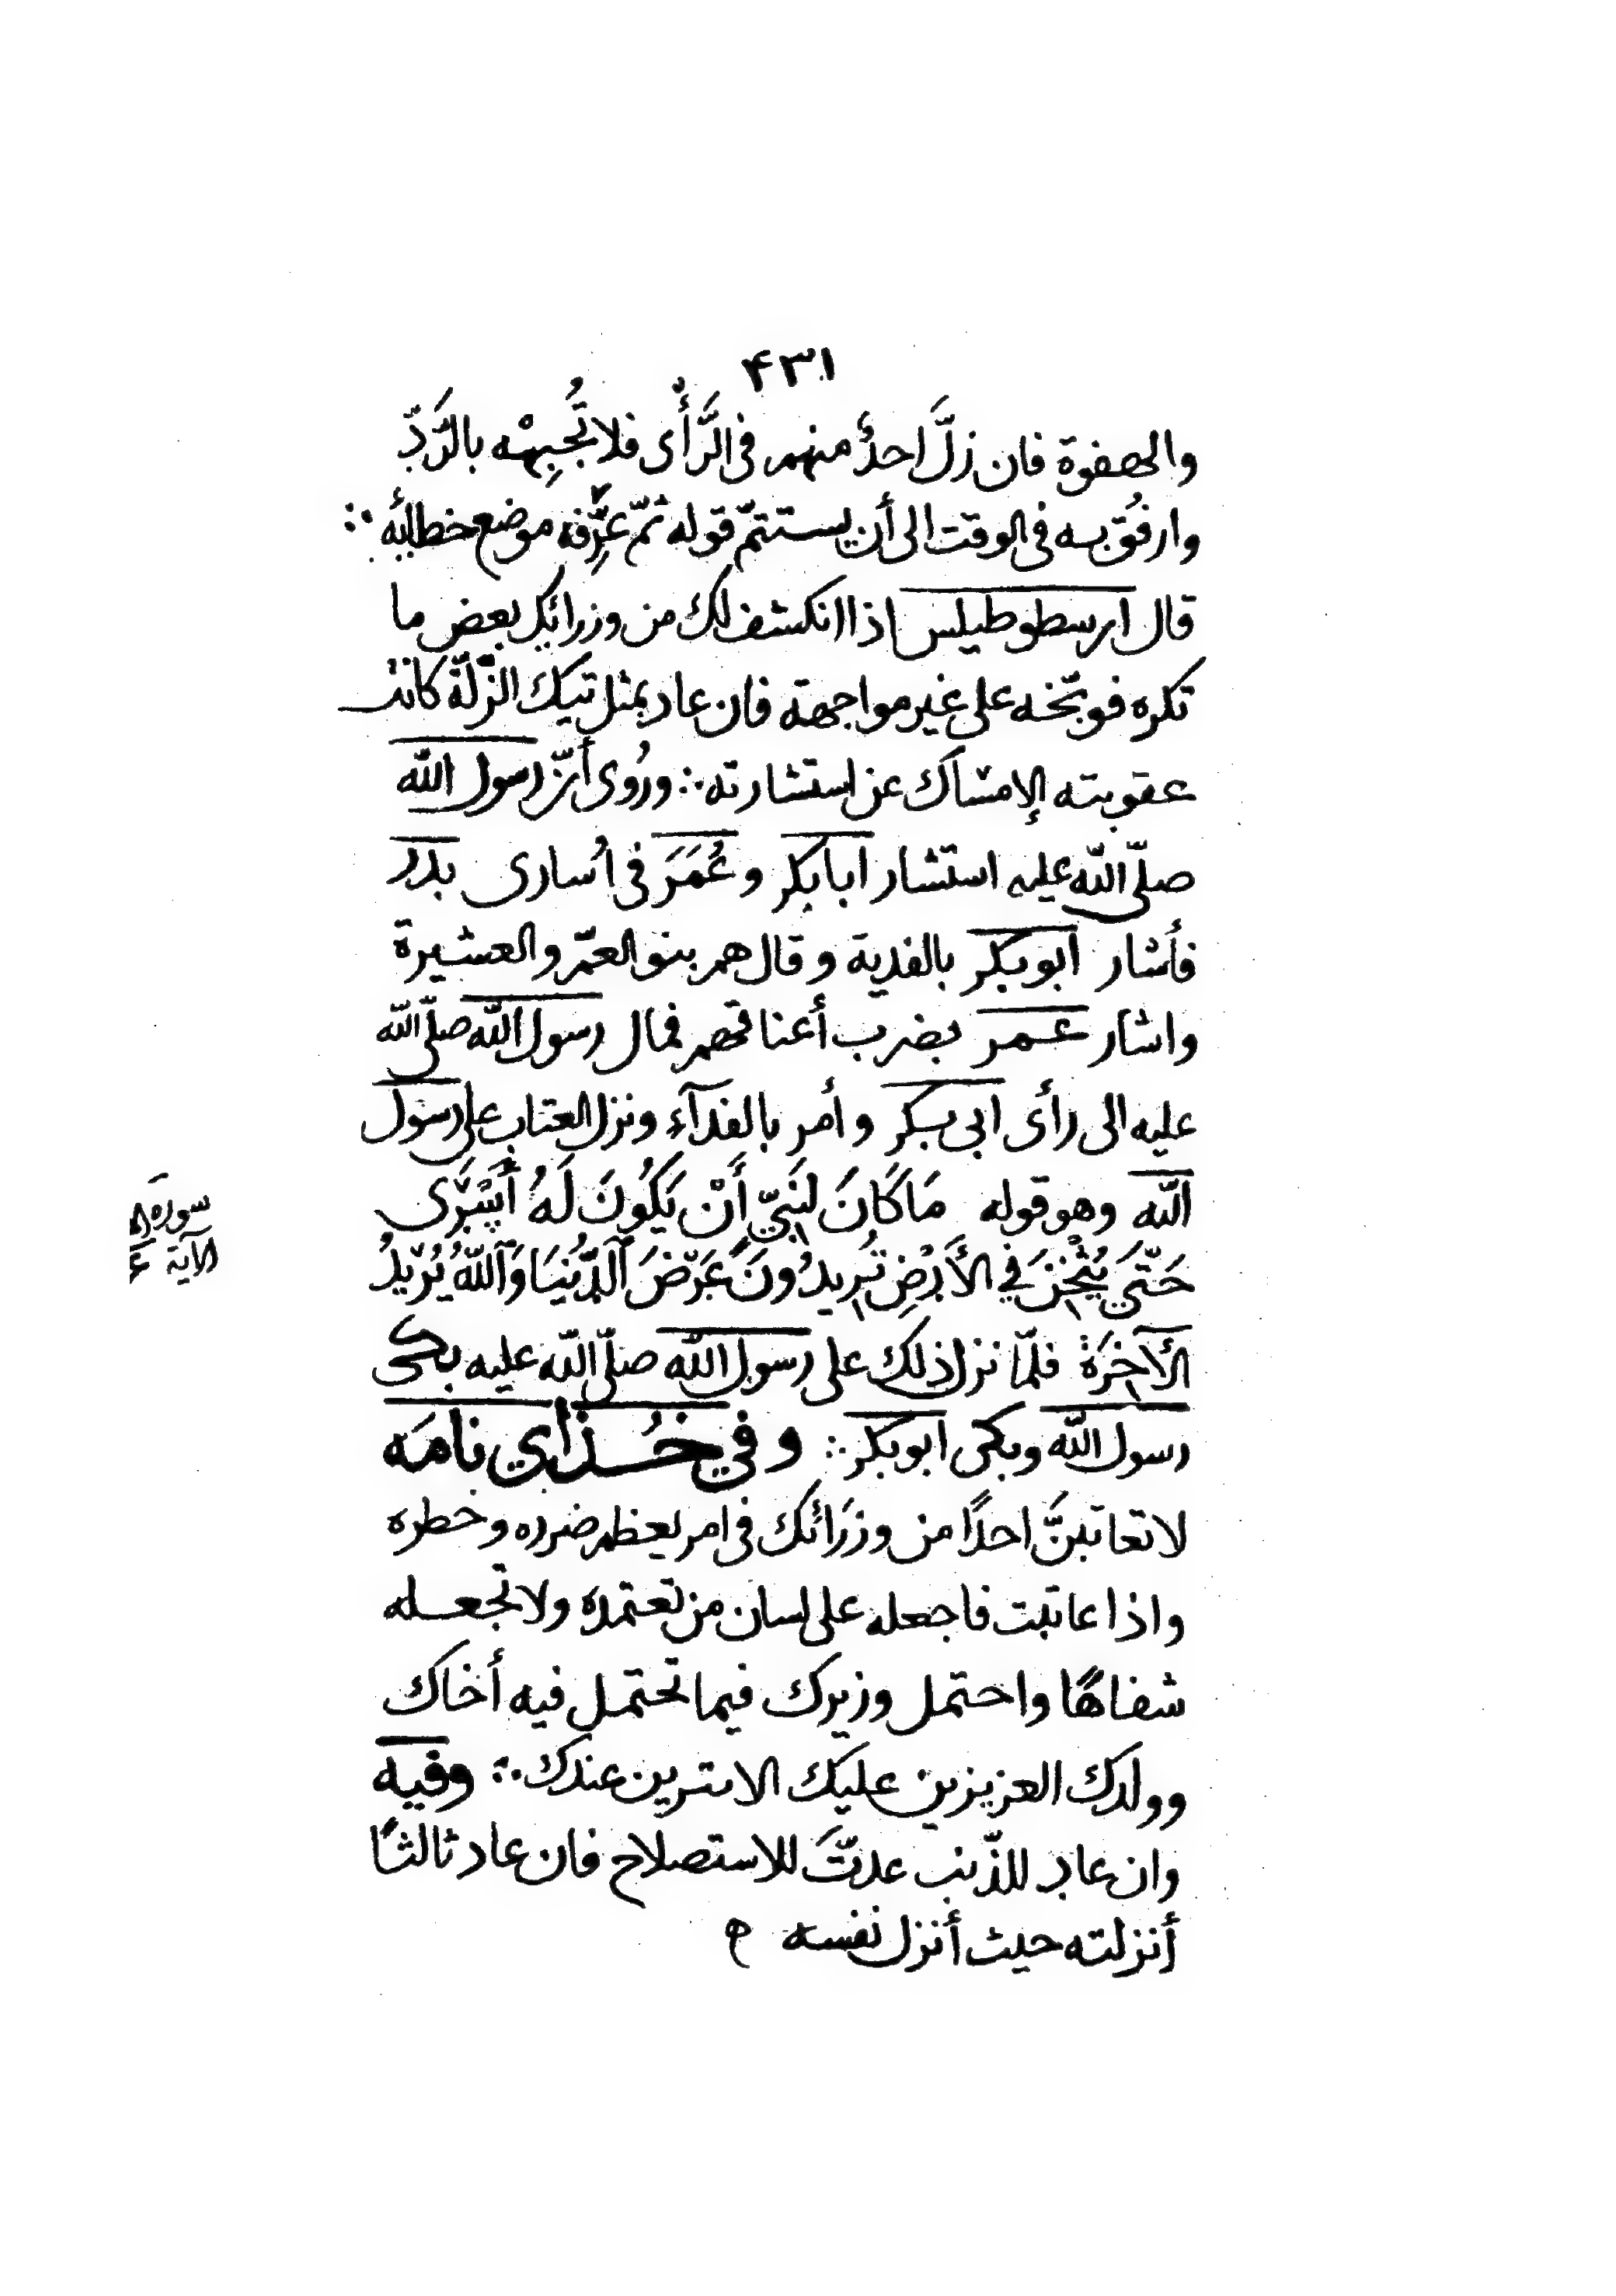 ۴۳۱
والهفوة فان زلَّ احدٌ منهم فى الرَّأى فلا تُجبِهْه بالرَّدّ
وارفُق به فى الوقت الى أن يستتمّ قوله ثمّ عَرِّفه موضع خطائه ∴
قال ارسطوطيلس اذا انكشف لك من وزرائك بعض ما
تكره فوبّخه على غير مواجهة فان عاد بمثل تيك الزّلّة كانت
عقوبته الإمساك عن استشارته ∴ ورُوى أنّ رسول الله
صلّى اللّه عليه استشار ابابكر و عُمَرَ فى اُسارى بدر
فأشار ابوبكر بالفدية و قال هم بنو العمّ والعشيرة
واشار عمر بضرب أعناقهم فمال رسول اللّه صلّى اللّه
عليه الى رأى ابى بكر و أمر بالفدآء ونزل العتاب على رسول
اللّه وهو قوله مَا كَانَ لِنَبِيّ أَنْ يَكُونَ لَهُ أَسْرَى
حَتَّى يُثْخِنَ فِي الأَرْضِ تُرِيدُونَ عَرَضَ ٱلدُّنْيَا وَٱللّهُ يُرِيدُ
الآخِرَةَ فلمّا نزل ذلك على رسول اللّه صلّى اللّه عليه بكى
رسول اللّه وبكى ابوبكر ∴ وفي خُذاي نامَه
لا تعاتبنَّ احدًا من وزَرائك فى امر يعظم ضرره وخطره
واذا عاتبت فاجعله على لسان من تعتمده ولا تجعله
شفاهًا واحتمل وزيرك فيما تحتمل فيه أخاك
وولدك العزيزين عليك الاثيرين عندك ∴ وفيه
وان عاد للذّنب عدتَّ للاستصلاح فان عاد ثالثًا
أنزلته حيث أنزل نفسه ه
سورة ٨
الآية